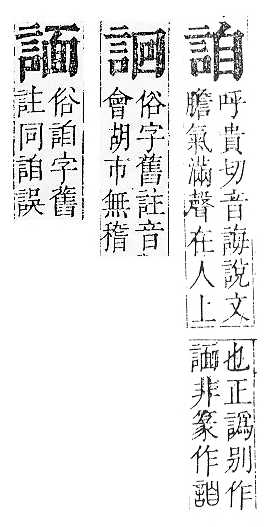 詯
呼貴切音誨說文
膽氣滿聲在人上
也正譌别作
非篆作
俗字舊註音
會胡市無稽
俗詯字舊
註同詯誤